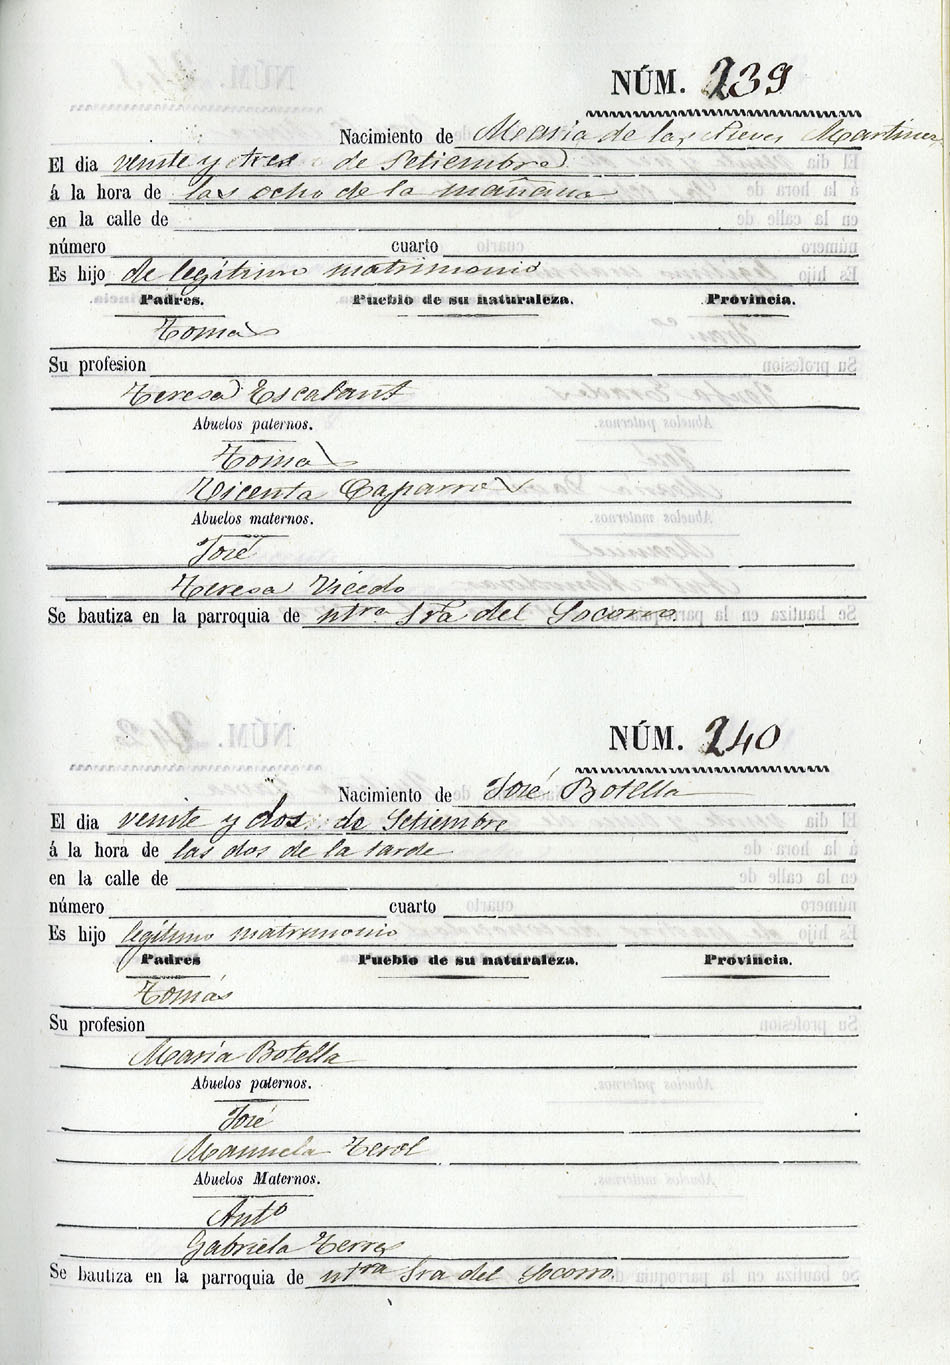 NÚM. 239
Nacimiento de Maria de las Nieves Martinez
El dia veinte y tres de Setiembre
á la hora de las ocho de la mañana
en la calle de
número cuarto
Es hijo de legítimo matrimonio
Padres. Pueblo de su naturaleza. Provincia.
Tomas
Su profesion
Teresa Escalant
Abuelos paternos.
Tomas
Vicenta Caparros
Abuelos maternos.
José
Teresa Vicedo
Se bautiza en la parroquia de ntra Sra del Socorro
NÚM. 240
Nacimiento de José Botella
El dia veinte y dos de Setiembre
á la hora de las dos de la tarde
en la calle de
número cuarto
Es hijo legítimo matrimonio
Padres Pueblo de su naturaleza. Provincia.
Tomás
Su profesion
María Botella
Abuelos paternos.
José
Manuela Terol
Abuelos Maternos.
Anto
Gabriela Terres
Se bautiza en la parroquia de ntra Sra del Socorro.